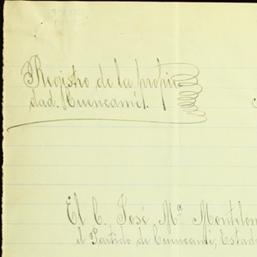 Registro de la propie
dad. Cuencamé.
El C. José Mª Montelon
el Partido de Cuencamé, Estad